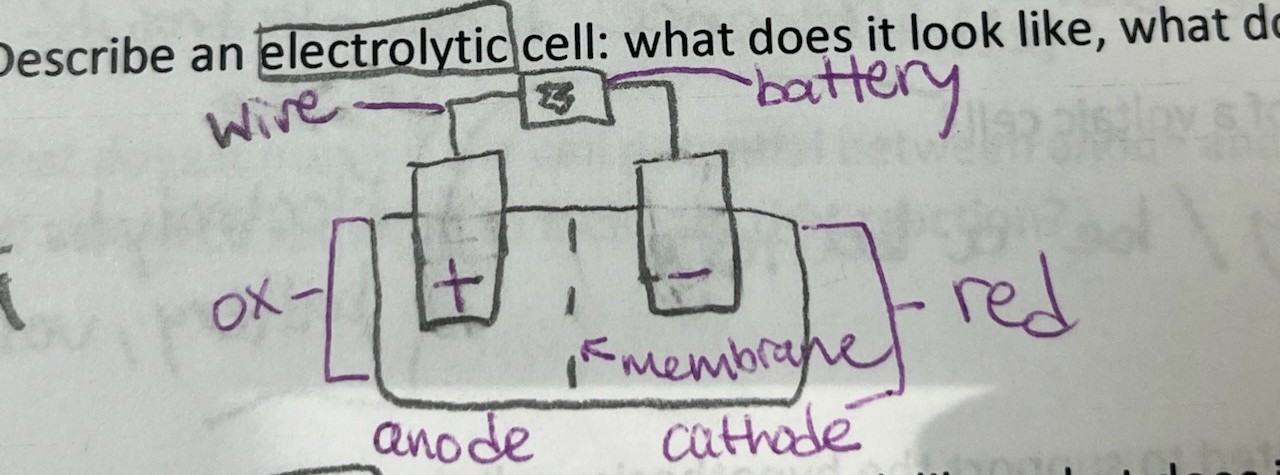 Describe an electrolytic cell: what does it look like, what do
wire
battery
+
-
ox
red
membrane
anode
cathode